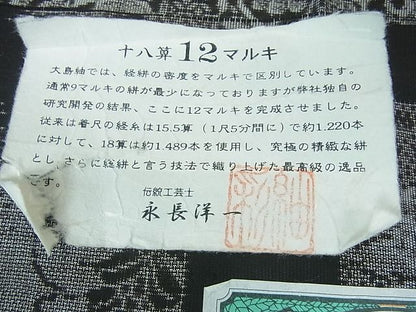 十八算 12マルキ
大島紬では、経絣の密度をマルキで区別しています。
通常9マルキの絣が最少になっておりますが弊社独自の
研究開発の結果、ここに12マルキを完成させました。
従来は着尺の経糸は15.5算(1尺5分間に)で約1.220本
に対して、18算は約1.489本を使用し、究極の精緻な絣
とし、さらに総絣と言う技法で織り上げた最高級の逸品
です。
伝統工芸士
永長洋一